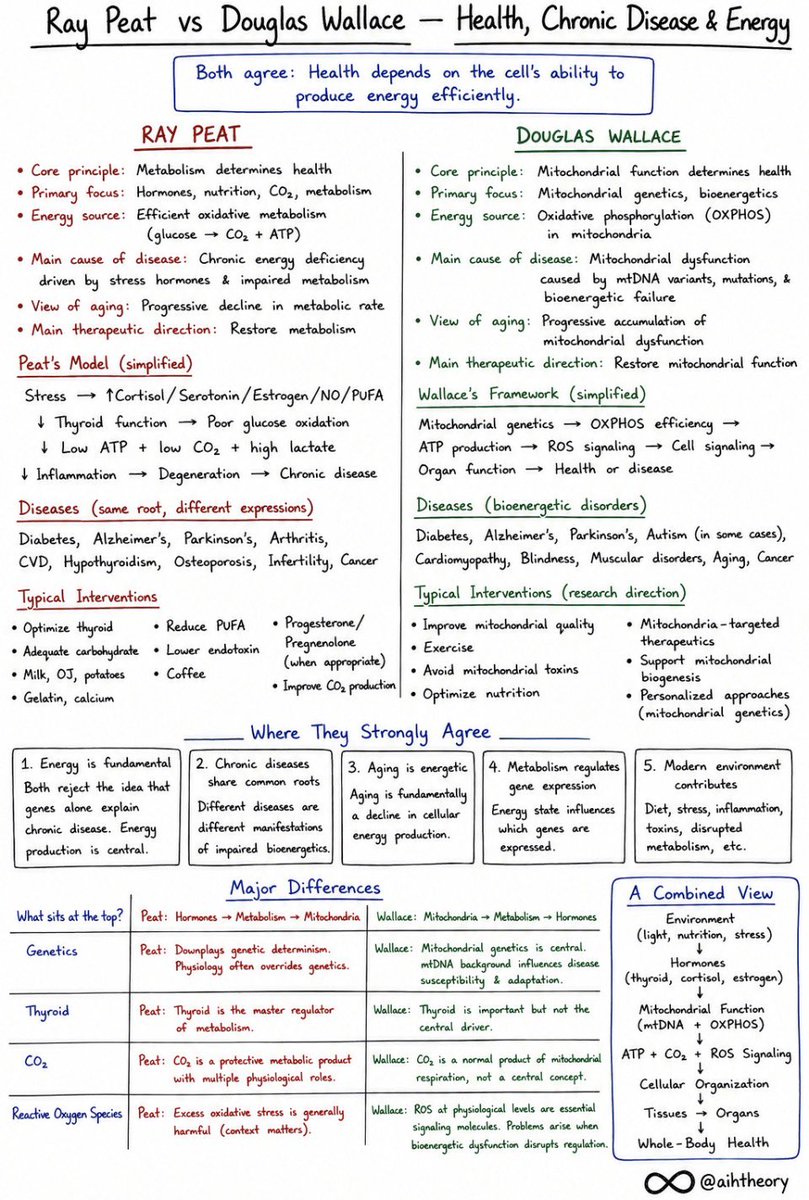 Ray Peat vs Douglas Wallace — Health, Chronic Disease & Energy
Both agree: Health depends on the cell's ability to
produce energy efficiently.
RAY PEAT
• Core principle: Metabolism determines health
• Primary focus: Hormones, nutrition, CO₂, metabolism
• Energy source: Efficient oxidative metabolism
(glucose → CO₂ + ATP)
• Main cause of disease: Chronic energy deficiency
driven by stress hormones & impaired metabolism
• View of aging: Progressive decline in metabolic rate
• Main therapeutic direction: Restore metabolism
Peat's Model (simplified)
Stress → ↑Cortisol/Serotonin/Estrogen/NO/PUFA
↓ Thyroid function → Poor glucose oxidation
↓ Low ATP + low CO₂ + high lactate
↓ Inflammation → Degeneration → Chronic disease
Diseases (same root, different expressions)
Diabetes, Alzheimer's, Parkinson's, Arthritis,
CVD, Hypothyroidism, Osteoporosis, Infertility, Cancer
Typical Interventions
• Optimize thyroid
• Adequate carbohydrate
• Milk, OJ, potatoes
• Gelatin, calcium
• Reduce PUFA
• Lower endotoxin
• Coffee
• Progesterone/
Pregnenolone
(when appropriate)
• Improve CO₂ production
DOUGLAS WALLACE
• Core principle: Mitochondrial function determines health
• Primary focus: Mitochondrial genetics, bioenergetics
• Energy source: Oxidative phosphorylation (OXPHOS)
in mitochondria
• Main cause of disease: Mitochondrial dysfunction
caused by mtDNA variants, mutations, &
bioenergetic failure
• View of aging: Progressive accumulation of
mitochondrial dysfunction
• Main therapeutic direction: Restore mitochondrial function
Wallace's Framework (simplified)
Mitochondrial genetics → OXPHOS efficiency →
ATP production → ROS signaling → Cell signaling →
Organ function → Health or disease
Diseases (bioenergetic disorders)
Diabetes, Alzheimer's, Parkinson's, Autism (in some cases),
Cardiomyopathy, Blindness, Muscular disorders, Aging, Cancer
Typical Interventions (research direction)
• Improve mitochondrial quality
• Exercise
• Avoid mitochondrial toxins
• Optimize nutrition
• Mitochondria-targeted
therapeutics
• Support mitochondrial
biogenesis
• Personalized approaches
(mitochondrial genetics)
Where They Strongly Agree
1. Energy is fundamental
Both reject the idea that
genes alone explain
chronic disease. Energy
production is central.
2. Chronic diseases
share common roots
Different diseases are
different manifestations
of impaired bioenergetics.
3. Aging is energetic
Aging is fundamentally
a decline in cellular
energy production.
4. Metabolism regulates
gene expression
Energy state influences
which genes are
expressed.
5. Modern environment
contributes
Diet, stress, inflammation,
toxins, disrupted
metabolism, etc.
Major Differences
What sits at the top?
Peat: Hormones → Metabolism → Mitochondria
Wallace: Mitochondria → Metabolism → Hormones
Genetics
Peat: Downplays genetic determinism.
Physiology often overrides genetics.
Wallace: Mitochondrial genetics is central.
mtDNA background influences disease
susceptibility & adaptation.
Thyroid
Peat: Thyroid is the master regulator
of metabolism.
Wallace: Thyroid is important but not the
central driver.
CO₂
Peat: CO₂ is a protective metabolic product
with multiple physiological roles.
Wallace: CO₂ is a normal product of mitochondrial
respiration, not a central concept.
Reactive Oxygen Species
Peat: Excess oxidative stress is generally
harmful (context matters).
Wallace: ROS at physiological levels are essential
signaling molecules. Problems arise when
bioenergetic dysfunction disrupts regulation.
A Combined View
Environment
(light, nutrition, stress)
↓
Hormones
(thyroid, cortisol, estrogen)
↓
Mitochondrial Function
(mtDNA + OXPHOS)
↓
ATP + CO₂ + ROS Signaling
↓
Cellular Organization
↓
Tissues → Organs
↓
Whole-Body Health
@aihtheory